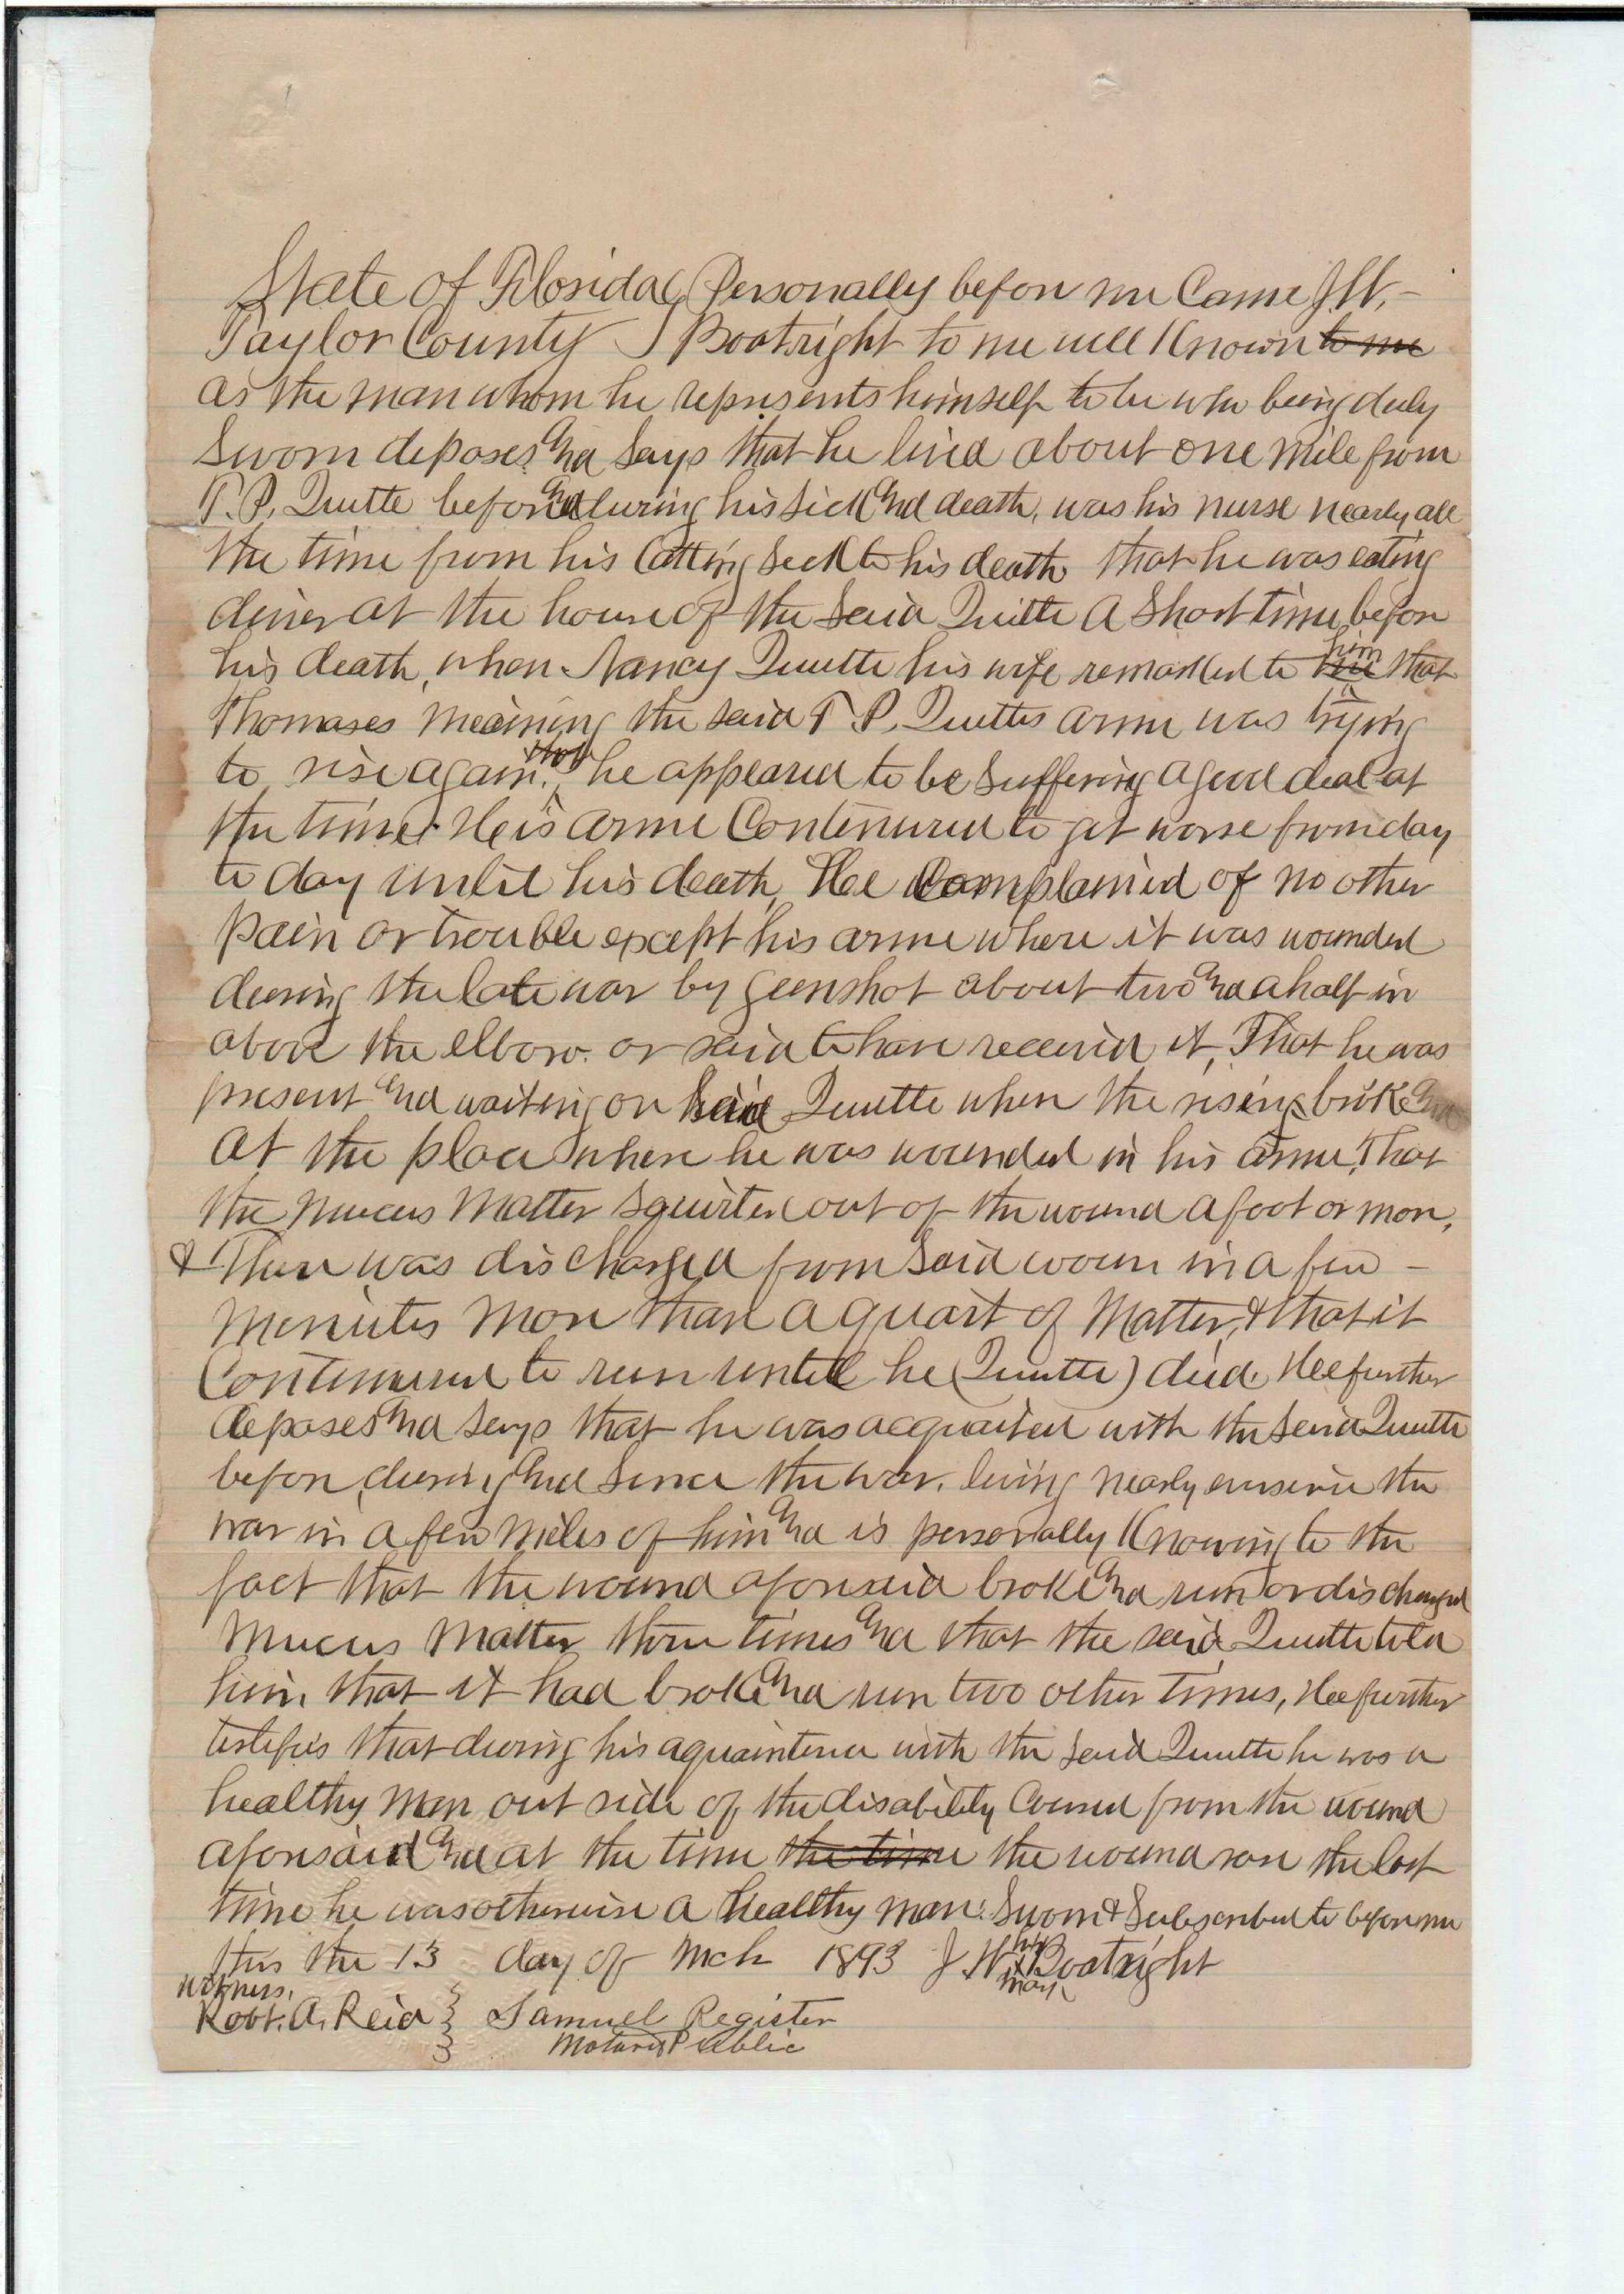 State of Florida ( Personally before me Came J.W.-
Taylor County ) Boatright to me well Known to me
as the man whom he represents himself to be who being duly
Sworn deposes And Says that he lived about one mile from
T. P. Quitte before And during his sick And death, was his nurse nearly all
the time from his taking Sick to his death that he was eating
diner at the house of the Said Quitte a Short time before
his death, when Nancy Quitte his wife remarked to me him that
Thomases meaning the said T. P. Quittes arme was trying
to rise again. he appeared to be Suffering a good deal at
the time. His arme Continured to get worse from day
to day until his death, Hee Complained of no other
pain or trouble except his arme where it was wounded
during the late war by gunshot about two And a half in
above the elbow. or said to have received it, That he was
present And waiting on Said Quitte when the rising broke And
at the place where he was wounded in his arme, That
the Mucus Matter Squirted out of the wound a foot or more,
& There was discharged from Said woun in a few -
Meniutes More than a quart of Matter, & that it
Continured to run untill he (Quitte) died. Hee further
deposes And Says that he was acquaited with the Said Quitte
before, during And Since the war. living nearly ever since the
war in a few Miles of him And is personally Knowing to the
fact that the wound aforesaid broke And run or discharged
Mucus Matter three times And that the said Quitte told
him, that it had broke And run two other times, Hee further
testifies that during his aquaintence with the Said Quitte he was a
healthy Man out side of the disability Coused from the wound
aforesaid And at the time the time the wound ran the last
time he was otherwise a healthy man. Sworn & Subscribed to before me
this the 13 day of Mch 1893 J. W. his x mark Boatright
Witness,
Robt. A. Reid } Samuel Register
Notary Public